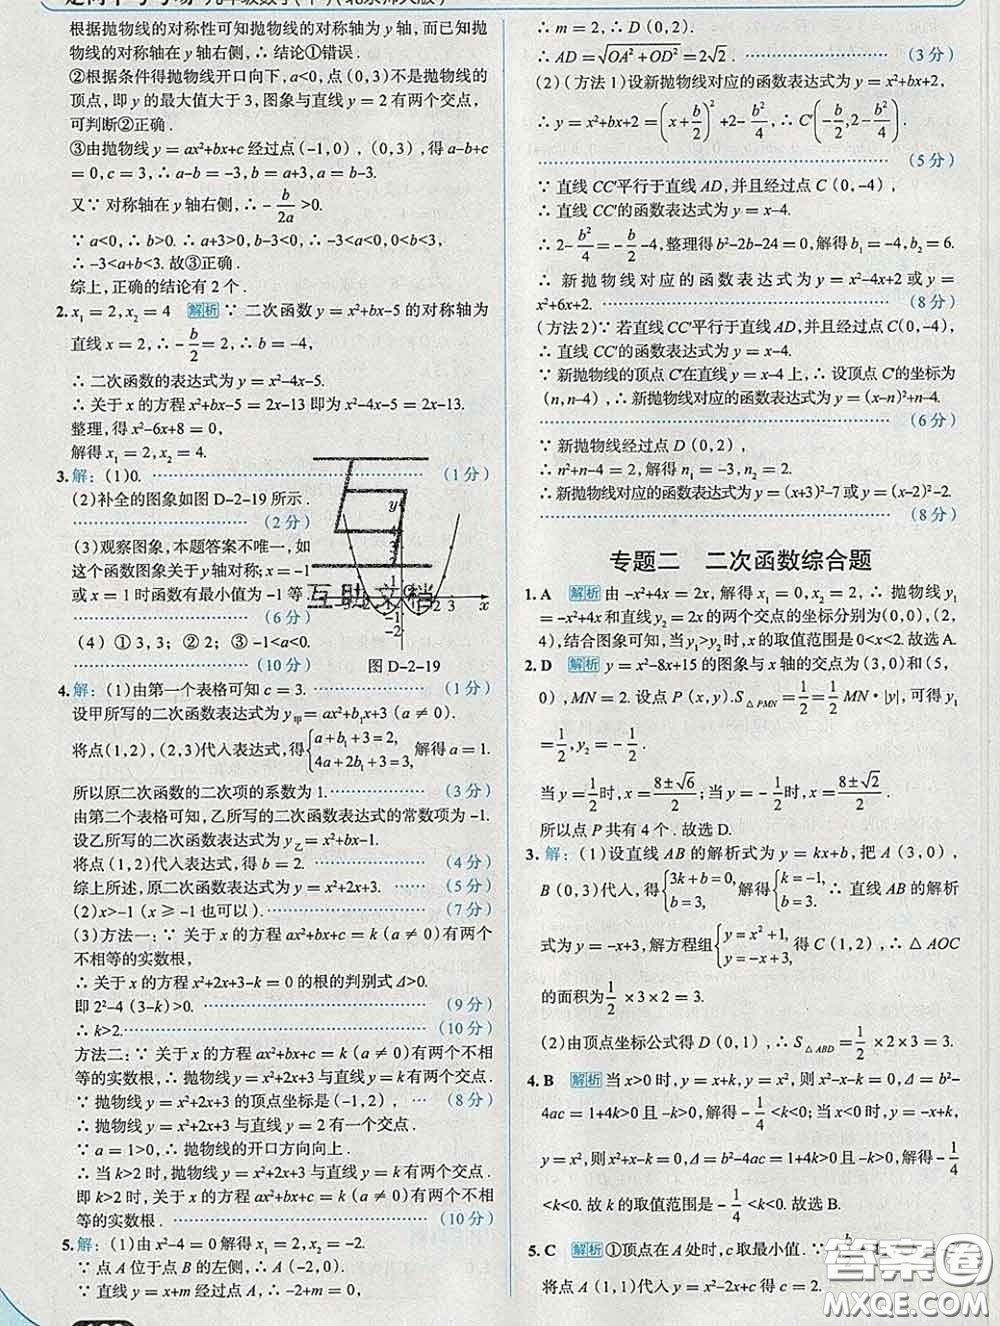 根据抛物线的对称性可知抛物线的对称轴为 y 轴，而已知抛
物线的对称轴在 y 轴右侧，∴ 结论①错误．
②根据条件得抛物线开口向下，a<0，点（0，3）不是抛物线的
顶点，即 y 的最大值大于 3，图象与直线 y = 2 有两个交点，
可判断②正确．
③由抛物线 y = ax²+bx+c 经过点（-1，0），（0，3），得 a-b+c
= 0，c = 3，∴ a-b = -3，b = a+3，a = b-3.
又∵ 对称轴在 y 轴右侧，∴ -b/2a>0.
∵ a<0，∴ b>0. ∴ a+3>0，b-3<0，∴ -3<a<0，0<b<3，
∴ -3<a+b<3. 故③正确．
综上，正确的结论有 2 个．
2. x₁ = 2，x₂ = 4 解析 ∵ 二次函数 y = x²+bx-5 的对称轴为
直线 x = 2，∴ -b/2 = 2，∴ b = -4，
∴ 二次函数的表达式为 y = x²-4x-5.
∴ 关于 x 的方程 x²+bx-5 = 2x-13 即为 x²-4x-5 = 2x-13.
整理，得 x²-6x+8 = 0，
解得 x₁ = 2，x₂ = 4.
3. 解：（1）0. （1 分）
（2）补全的图象如图 D-2-19 所示．
（2 分）
（3）观察图象，本题答案不唯一，如
这个函数图象关于 y 轴对称；x = -1
或 x = 1 时函数有最小值为 -1 等．
（6 分）
（4）① 3，3；② 2；③ -1<a<0.
（10 分）
图 D-2-19
4. 解：（1）由第一个表格可知 c = 3. （1 分）
设甲所写的二次函数表达式为 y甲 = ax²+b₁x+3（a ≠ 0）.
将点（1，2），（2，3）代入表达式，得{a+b₁+3 = 2，4a+2b₁+3 = 3， 解得 a = 1.
所以原二次函数的二次项的系数为 1. （3 分）
由第二个表格可知，乙所写的二次函数表达式的常数项为 -1.
设乙所写的二次函数表达式为 y乙 = ax²+bx-1.
将点（1，2）代入表达式，得 b = 2. （4 分）
综上所述，原二次函数表达式为 y = x²+2x+3. （5 分）
（2）x>-1（x ≥ -1 也可以）. （7 分）
（3）方法一：∵ 关于 x 的方程 ax²+bx+c = k（a ≠ 0）有两个
不相等的实数根，
∴ 关于 x 的方程 x²+2x+3-k = 0 的根的判别式 Δ>0.
即 2²-4（3-k）>0. （9 分）
∴ k>2. （10 分）
方法二：∵ 关于 x 的方程 ax²+bx+c = k（a ≠ 0）有两个不相
等的实数根，∴ 抛物线 y = x²+2x+3 与直线 y = k 有两个交点．
∵ 抛物线 y = x²+2x+3 的顶点坐标是（-1，2）， （8 分）
∴ 抛物线 y = x²+2x+3 与直线 y = 2 有一个交点．
∵ a = 1>0，∴ 抛物线的开口方向向上．
∴ 当 k>2 时，抛物线 y = x²+2x+3 与直线 y = k 有两个交点．
即 k>2 时，关于 x 的方程 ax²+bx+c = k（a ≠ 0）有两个不相
等的实数根． （10 分）
5. 解：（1）由 x²-4 = 0 解得 x₁ = 2，x₂ = -2.
∵ 点 A 位于点 B 的左侧，∴ A（-2，0）.
∵ 直线 y = x+m 经过点 A，∴ -2+m = 0，
∴ m = 2，∴ D（0，2）.
∴ AD = √(OA²+OD²) = 2√2. （3 分）
（2）（方法 1）设新抛物线对应的函数表达式为 y = x²+bx+2，
∴ y = x²+bx+2 = (x+b/2)²+2-b²/4，∴ C′(-b/2，2-b²/4).
（5 分）
∵ 直线 CC′平行于直线 AD，并且经过点 C（0，-4），
∴ 直线 CC′的函数表达式为 y = x-4.
∴ 2-b²/4 = -b/2-4，整理得 b²-2b-24 = 0，解得 b₁ = -4，b₂ = 6.
∴ 新抛物线对应的函数表达式为 y = x²-4x+2 或 y =
x²+6x+2. （8 分）
（方法 2）∵ 若直线 CC′平行于直线 AD，并且经过点 C（0，-4），
∴ 直线 CC′的函数表达式为 y = x-4.
∵ 新抛物线的顶点 C′在直线 y = x-4 上，∴ 设顶点 C′的坐标为
（n，n-4），∴ 新抛物线对应的函数表达式为 y = (x-n)²+n-4.
（6 分）
∵ 新抛物线经过点 D（0，2），
∴ n²+n-4 = 2，解得 n₁ = -3，n₂ = 2.
∴ 新抛物线对应的函数表达式为 y = (x+3)²-7 或 y = (x-2)²-2.
（8 分）
专题二 二次函数综合题
1. A 解析 由 -x²+4x = 2x，解得 x₁ = 0，x₂ = 2，∴ 抛物线 y₁
= -x²+4x 和直线 y₂ = 2x 的两个交点的坐标分别为（0，0），（2，
4），结合图象可知，当 y₁>y₂ 时，x 的取值范围是 0<x<2. 故选 A.
2. D 解析 y = x²-8x+15 的图象与 x 轴的交点为（3，0）和（5，
0），MN = 2. 设点 P（x，y）. S△PMN = 1/2 = 1/2 MN·|y|，可得 y₁
= 1/2，y₂ = -1/2.
当 y = 1/2 时，x = (8±√6)/2；当 y = -1/2 时，x = (8±√2)/2.
所以点 P 共有 4 个．故选 D.
3. 解：（1）设直线 AB 的解析式为 y = kx+b，把 A（3，0），
B（0，3）代入，得{3k+b = 0，b = 3， 解得{k = -1，b = 3， ∴ 直线 AB 的解析
式为 y = -x+3，解方程组{y = x²+1，y = -x+3， 得 C（1，2），∴ △AOC
的面积为 1/2 ×3×2 = 3.
（2）由顶点坐标公式得 D（0，1），∴ S△ABD = 1/2 ×2×3 = 3.
4. B 解析 当 x>0 时，y = x+k，y = x²，则 x²-x-k = 0，Δ = b²-
4ac = 1+4k>0 且 -k>0，解得 -1/4 <k<0；当 x<0 时，y = -x+k，
y = x²，则 x²+x-k = 0，Δ = b²-4ac = 1+4k>0 且 -k>0，解得 -1/4
<k<0. 故 k 的取值范围是 -1/4 <k<0. 故选 B.
5. C 解析 ①顶点在 A 处时，c 取最小值．∵
将点 A（1，1）代入 y = x²-2x+c 得 c = 2.
互助文档
答案圈
MXQE.COM